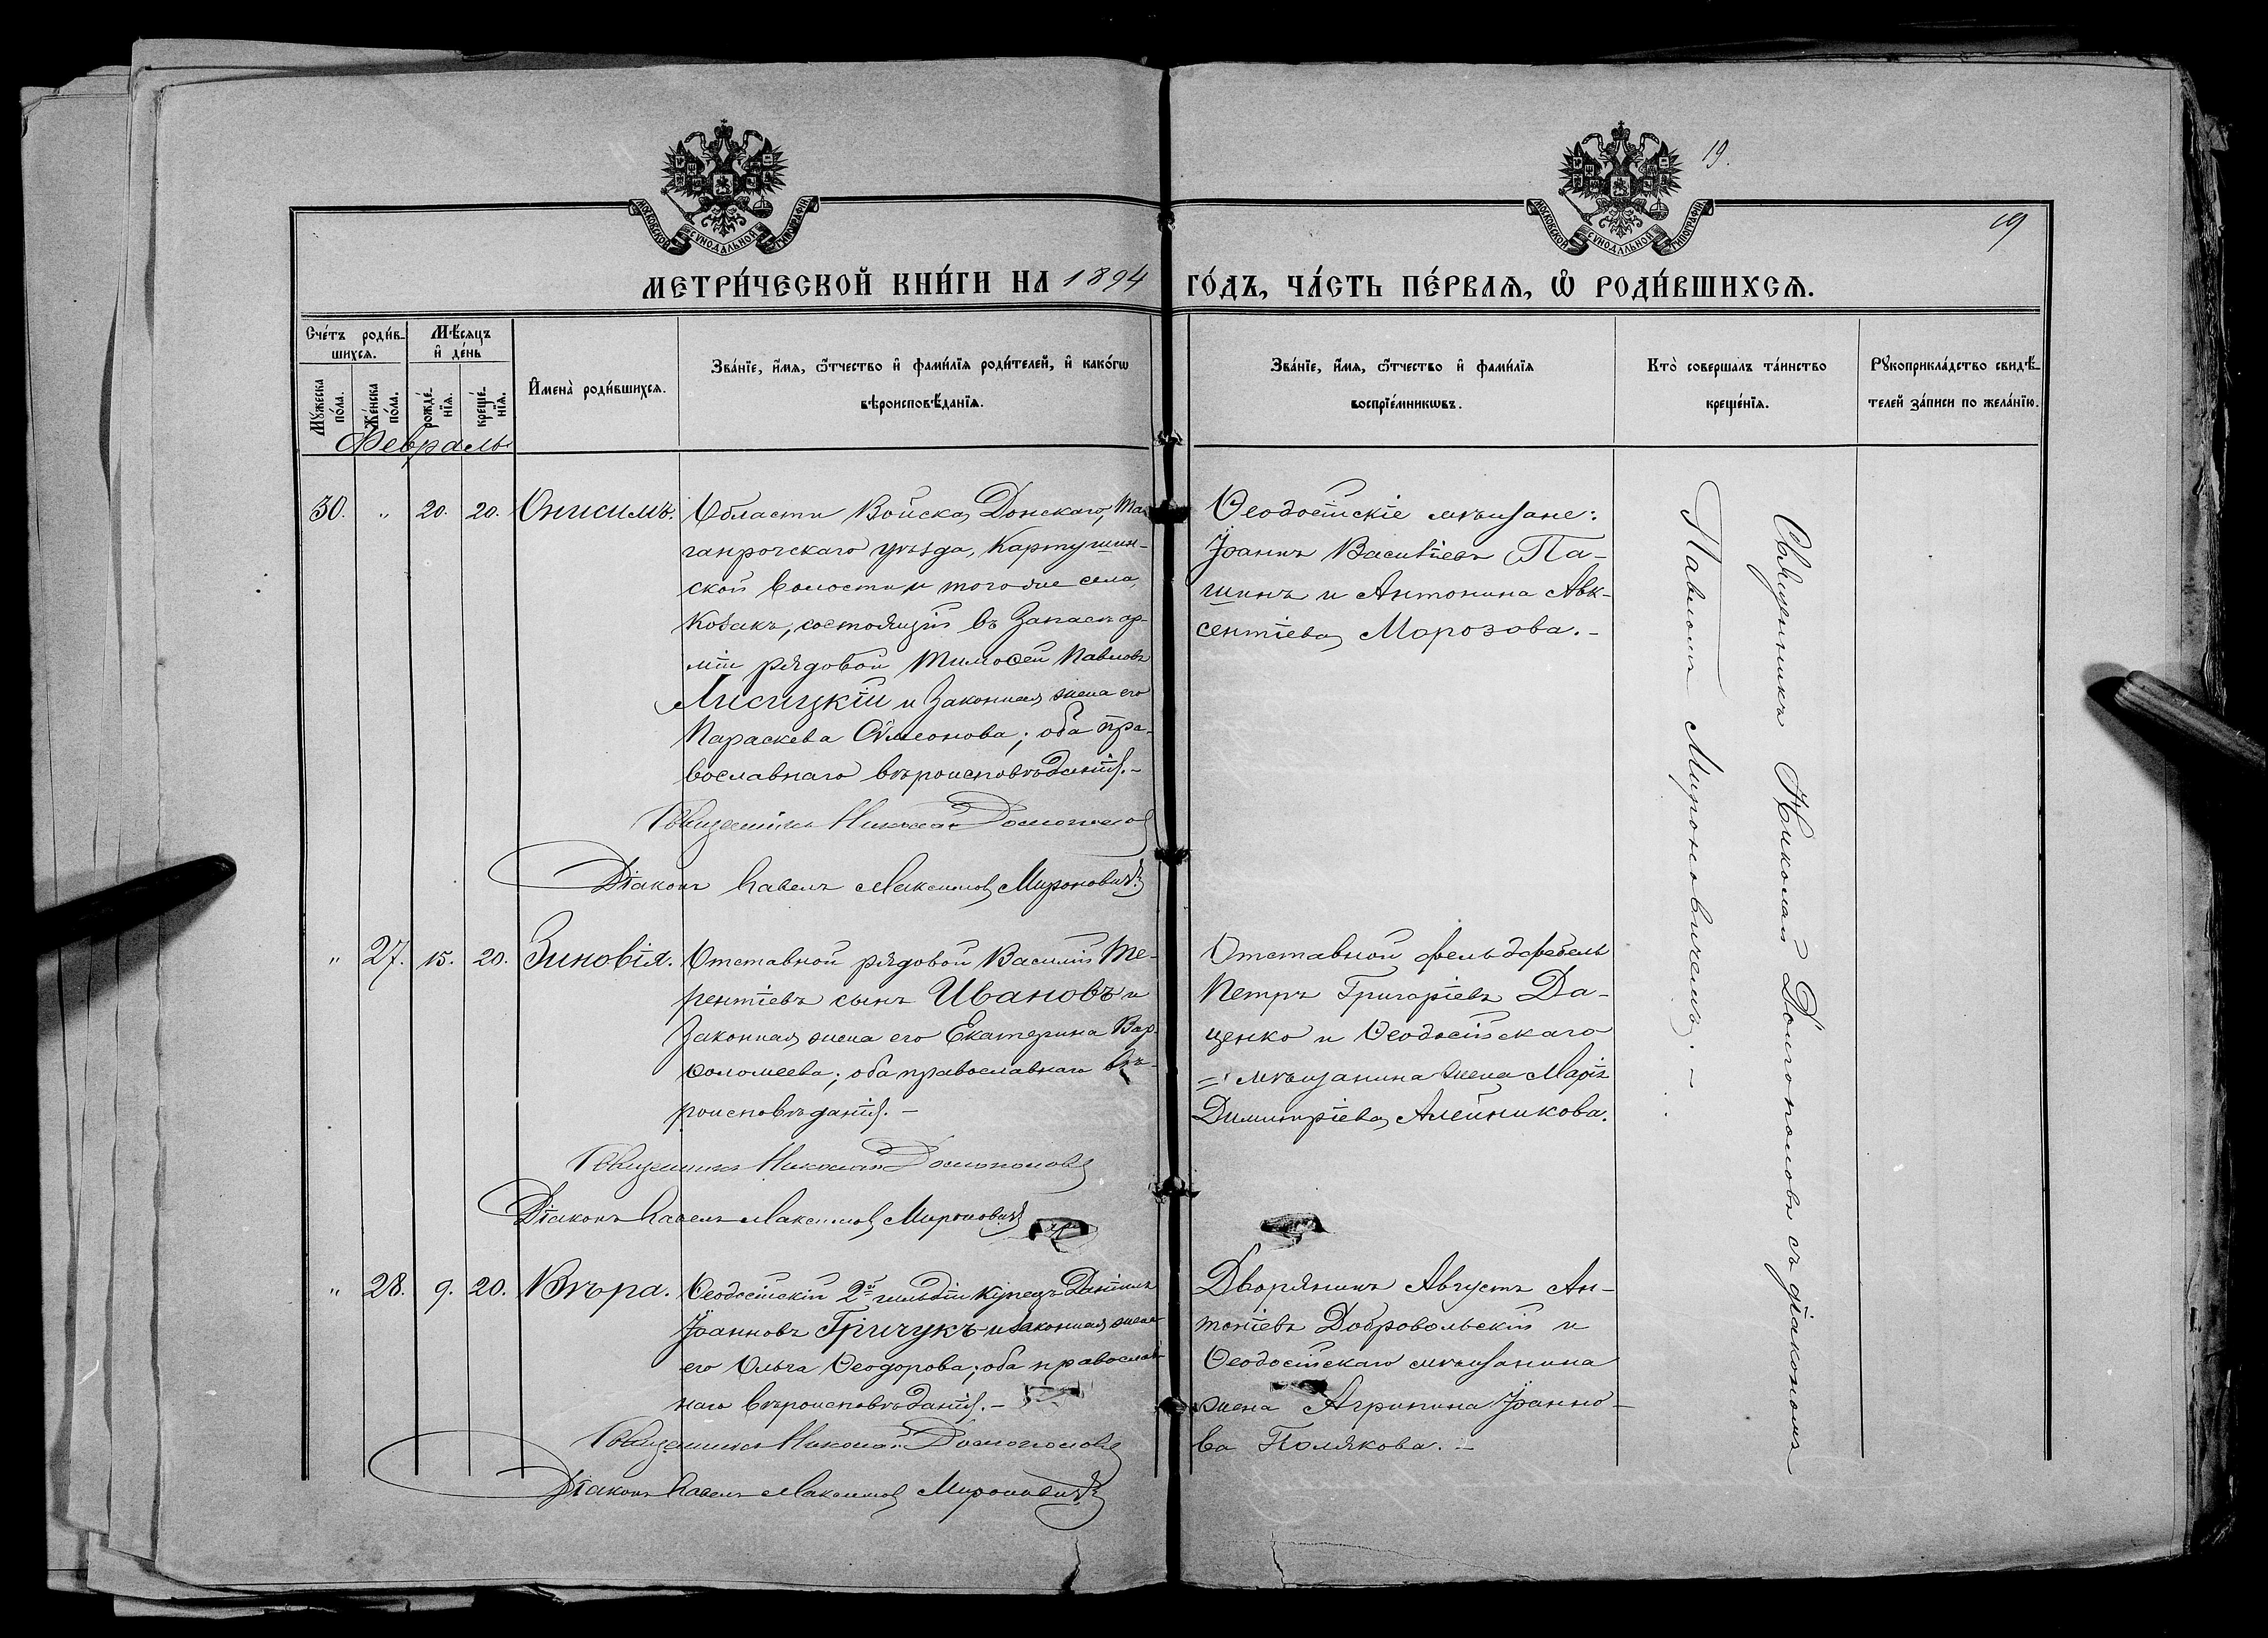 19.
19
МОСКОВСКОЙ СѴНОДАЛЬНОЙ ТИПОГРАФІИ
МОСКОВСКОЙ СѴНОДАЛЬНОЙ ТИПОГРАФІИ
МЕТРИ́ЧЕСКОЙ КНИ́ГИ НА 1894 ГО́ДЪ, ЧА́СТЬ ПЕ́РВАѦ, Ѡ҆ РОДИ́ВШИХСѦ.
Сче́тъ роди́в-
шихсѧ.
Мꙋ́жеска по́ла.
Же́нска по́ла.
Мѣ́сяцъ
и҆ де́нь
рожде́-
нїѧ.
креще́-
нїѧ.
И҆мена̀ роди́вшихсѧ.
Зва́нїе, и҆́мѧ, ѻ҆́тчество и҆ фами́лїѧ роди́телей, и҆ како́гѡ
вѣроисповѣ́данїѧ.
Зва́нїе, и҆́мѧ, ѻ҆́тчество и҆ фами́лїѧ
воспрїе́мникѡвъ.
Кто̀ соверша́лъ та́инство
креще́нїѧ.
Рꙋкоприкла́дство свидѣ́-
телей за́писи по жела́нїю.
Февраль
30. „ 20. 20. Онисимъ.
Области Войска Донскаго, Та-
ганрогскаго уѣзда, Картушин-
ской волости и тогоже села,
козакъ, состоящій въ запасѣ ар-
міи рядовой Тимоѳей Павловъ
Лисицкій и законная жена его
Параскева Сѵмеонова; оба пра-
вославнаго вѣроисповѣданія.-
Священникъ Николай Долгополов
Діаконъ Павелъ Максимов Мироновичъ
Ѳеодосійскіе мѣщане:
Іоаннъ Василіевъ Па-
шинъ и Антонина Авк-
сентіева Морозова.-
Священникъ Николай Долгополовъ съ діакономъ
Павломъ Мироновичемъ.-
„ 27. 15. 20. Зиновія.
Отставной рядовой Василій Те-
рентіевъ сынъ Ивановъ и
законная жена его Екатерина Вар-
ѳоломеева; оба православнаго вѣ-
роисповѣданія.-
Священникъ Николай Долгополовъ
Діаконъ Павелъ Максимов Мироновичъ
Отставной фельдфебель
Петръ Григоріевъ Да-
ценко и Ѳеодосійскаго
мѣщанина жена Марія
Димитріева Алейникова.
„ 28. 9. 20. Вѣра.
Ѳеодосійскій 2й гильдіи купецъ Даніилъ
Іоанновъ Гричукъ и законная жена
его Ольга Ѳеодорова; оба православ-
наго вѣроисповѣданія.-
Священникъ Николай Долгополовъ
Діаконъ Павелъ Максимов Мироновичъ
Дворянинъ Августъ Ан-
тоніевъ Добровольскій и
Ѳеодосійскаго мѣщанина
жена Агрипина Іоанно-
ва Полякова.-